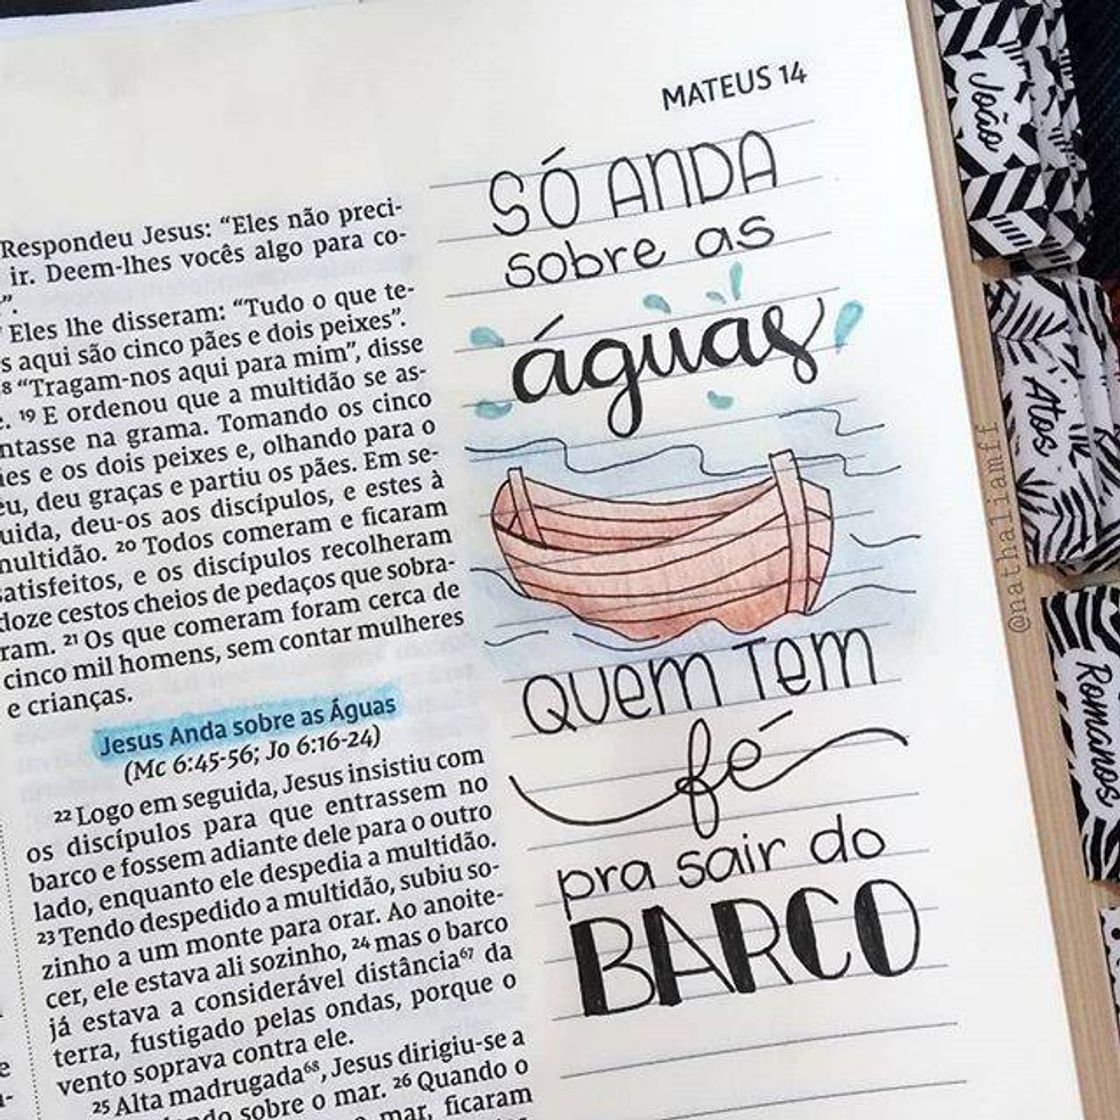 MATEUS 14
Respondeu Jesus: “Eles não preci-
ir. Deem-lhes vocês algo para co-
”.
Eles lhe disseram: “Tudo o que te-
s aqui são cinco pães e dois peixes”.
18 “Tragam-nos aqui para mim”, disse
e. 19 E ordenou que a multidão se as-
ntasse na grama. Tomando os cinco
ães e os dois peixes e, olhando para o
éu, deu graças e partiu os pães. Em se-
uida, deu-os aos discípulos, e estes à
multidão. 20 Todos comeram e ficaram
satisfeitos, e os discípulos recolheram
doze cestos cheios de pedaços que sobra-
ram. 21 Os que comeram foram cerca de
cinco mil homens, sem contar mulheres
e crianças.
Jesus Anda sobre as Águas
(Mc 6:45-56; Jo 6:16-24)
22 Logo em seguida, Jesus insistiu com
os discípulos para que entrassem no
barco e fossem adiante dele para o outro
lado, enquanto ele despedia a multidão.
23 Tendo despedido a multidão, subiu so-
zinho a um monte para orar. Ao anoite-
cer, ele estava ali sozinho, 24 mas o barco
já estava a considerável distância67 da
terra, fustigado pelas ondas, porque o
vento soprava contra ele.
25 Alta madrugada68, Jesus dirigiu-se a
sobre o mar. 26 Quando o
mar, ficaram
SÓ ANDA
sobre as
águas
QUEM TEM
fé
pra sair do
BARCO
João
Atos
Romanos
@nathaliamff